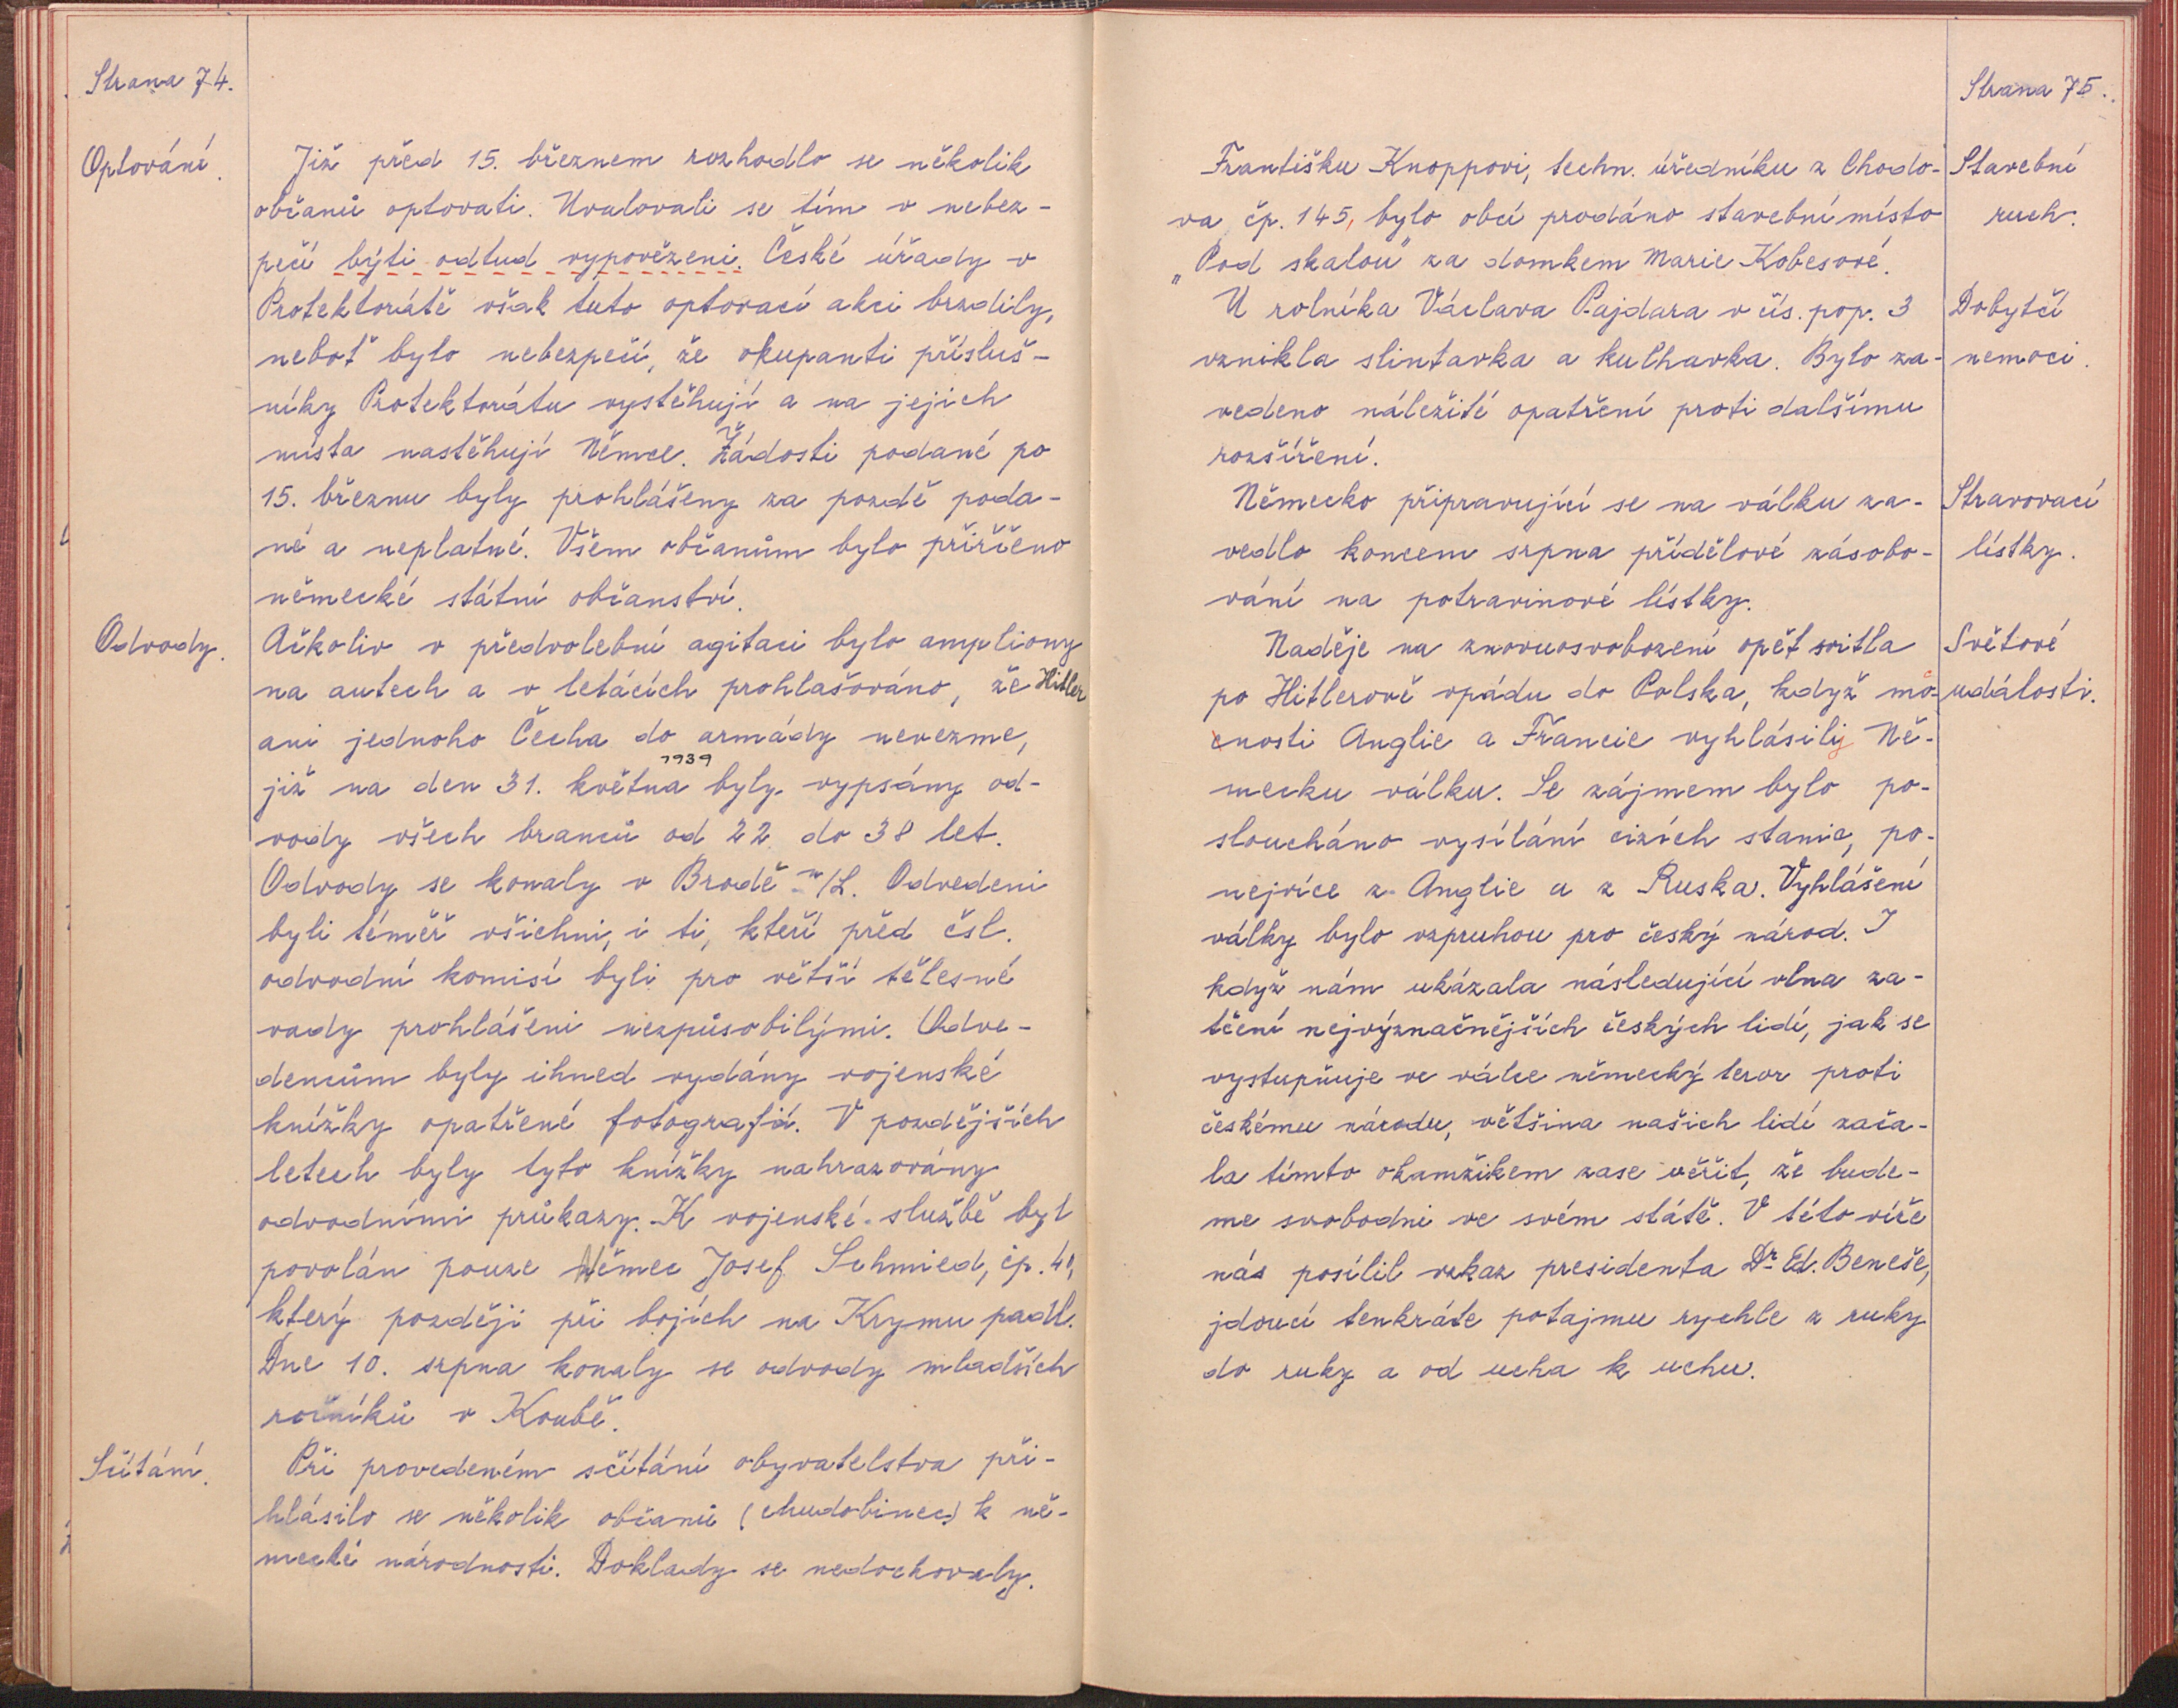 Strana 74.
Optování.
Již před 15. březnem rozhodlo se několik
občanů optovati. Uvalovali se tím v nebez-
pečí býti odtud vypovězeni. České úřady v
Protektorátě však tuto optovací akci brzdily,
neboť bylo nebezpečí, že okupanti přísluš-
níky Protektorátu vystěhují a na jejich
místa nastěhují Němce. Žádosti podané po
15. březnu byly prohlášeny za pozdě poda-
né a neplatné. Všem občanům bylo přiřčeno
německé státní občanství.
Odvody.
Ačkoliv v předvolební agitaci bylo ampliony
na autech a v letácích prohlašováno, že Hitler
ani jednoho Čecha do armády nevezme,
1939
již na den 31. května byly vypsány od-
vody všech branců od 22 do 38 let.
Odvody se konaly v Brodě n/L. Odvedeni
byli téměř všichni, i ti, kteří před čsl.
odvodní komisí byli pro větší tělesné
vady prohlášeni nezpůsobilými. Odve-
dencům byly ihned vydány vojenské
knížky opatřené fotografií. V pozdějších
letech byly tyto knížky nahrazovány
odvodními průkazy. K vojenské službě byl
povolán pouze Němec Josef Schmied, čp. 41,
který později při bojích na Krymu padl.
Dne 10. srpna konaly se odvody mladších
ročníků v Koubě.
Sčítání.
Při provedeném sčítání obyvatelstva při-
hlásilo se několik občanů (chudobinec) k ně-
mecké národnosti. Doklady se nedochovaly.
Strana 75.
Františku Knoppovi, techn. úředníku z Chodo-
va čp. 145, bylo obcí prodáno stavební místo
„Pod skalou" za domkem Marie Kobesové.
Stavební
ruch.
U rolníka Václava Pajdara v čís. pop. 3
vznikla slintavka a kulhavka. Bylo za-
vedeno náležité opatření proti dalšímu
rozšíření.
Dobytčí
nemoci.
Německo připravující se na válku za-
vedlo koncem srpna přídělové zásobo-
vání na potravinové lístky.
Stravovací
lístky.
Naděje na znovuosvobození opět svitla
po Hitlerově vpádu do Polska, když mo-
cnosti Anglie a Francie vyhlásily Ně-
mecku válku. Se zájmem bylo po-
sloucháno vysílání cizích stanic, po-
nejvíce z Anglie a z Ruska. Vyhlášení
války bylo vzpruhou pro český národ. I
když nám ukázala následující vlna za-
tčení nejvýznačnějších českých lidí, jak se
vystupňuje ve válce německý teror proti
českému národu, většina našich lidí zača-
la tímto okamžikem zase věřit, že bude-
me svobodni ve svém státě. V této víře
nás posílil vzkaz presidenta Dr. Ed. Beneše,
jdoucí tenkráte potajmu rychle z ruky
do ruky a od ucha k uchu.
Světové
události.